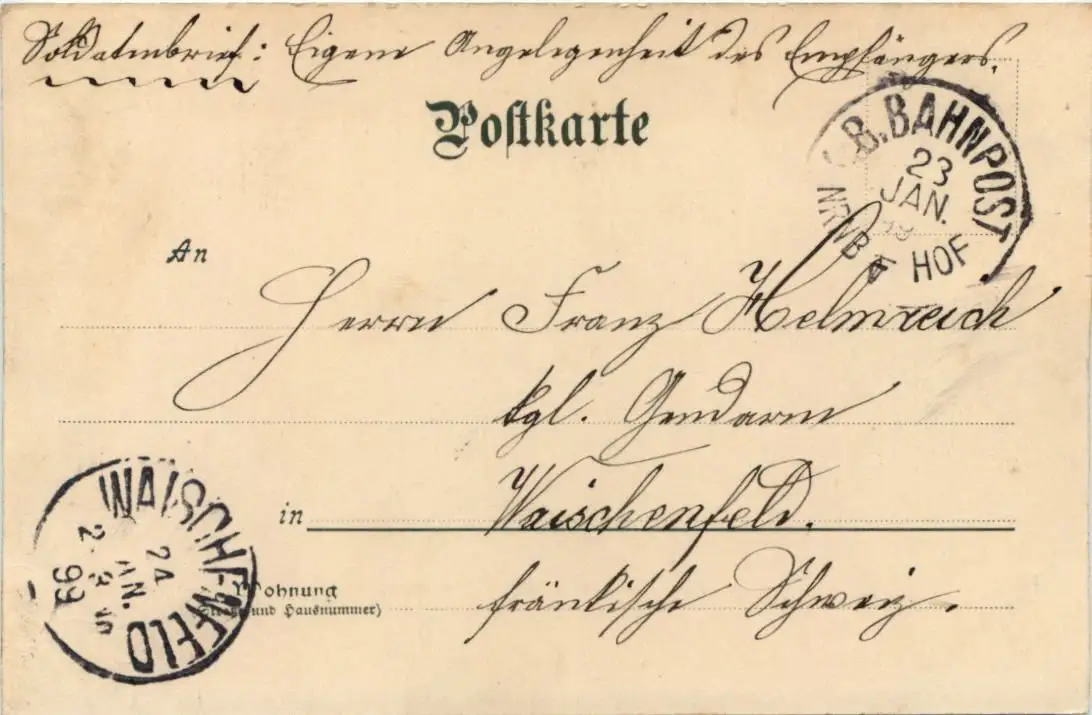 Soldatenbrief: Eigene Angelegenheit des Empfängers.
Postkarte
B. BAHNPOST
23
JAN.
99
NRNBG HOF
An
Herrn Franz Helmreich
kgl. Gendarm
in Waischenfeld.
Wohnung
(Straße und Hausnummer)
fränkische Schweiz.
WAISCHENFELD
24
JAN.
99